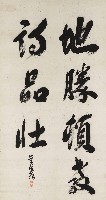 地勝頓教
詩品壯